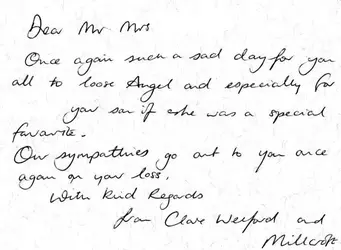 Dear Mr Mrs
Once again such a sad day for you
all to loose Angel and especially for
your son if she was a special
favourite.
Our sympathies go out to you once
again on your loss.
With Kind Regards
from Clare Wexford and
Millcroft